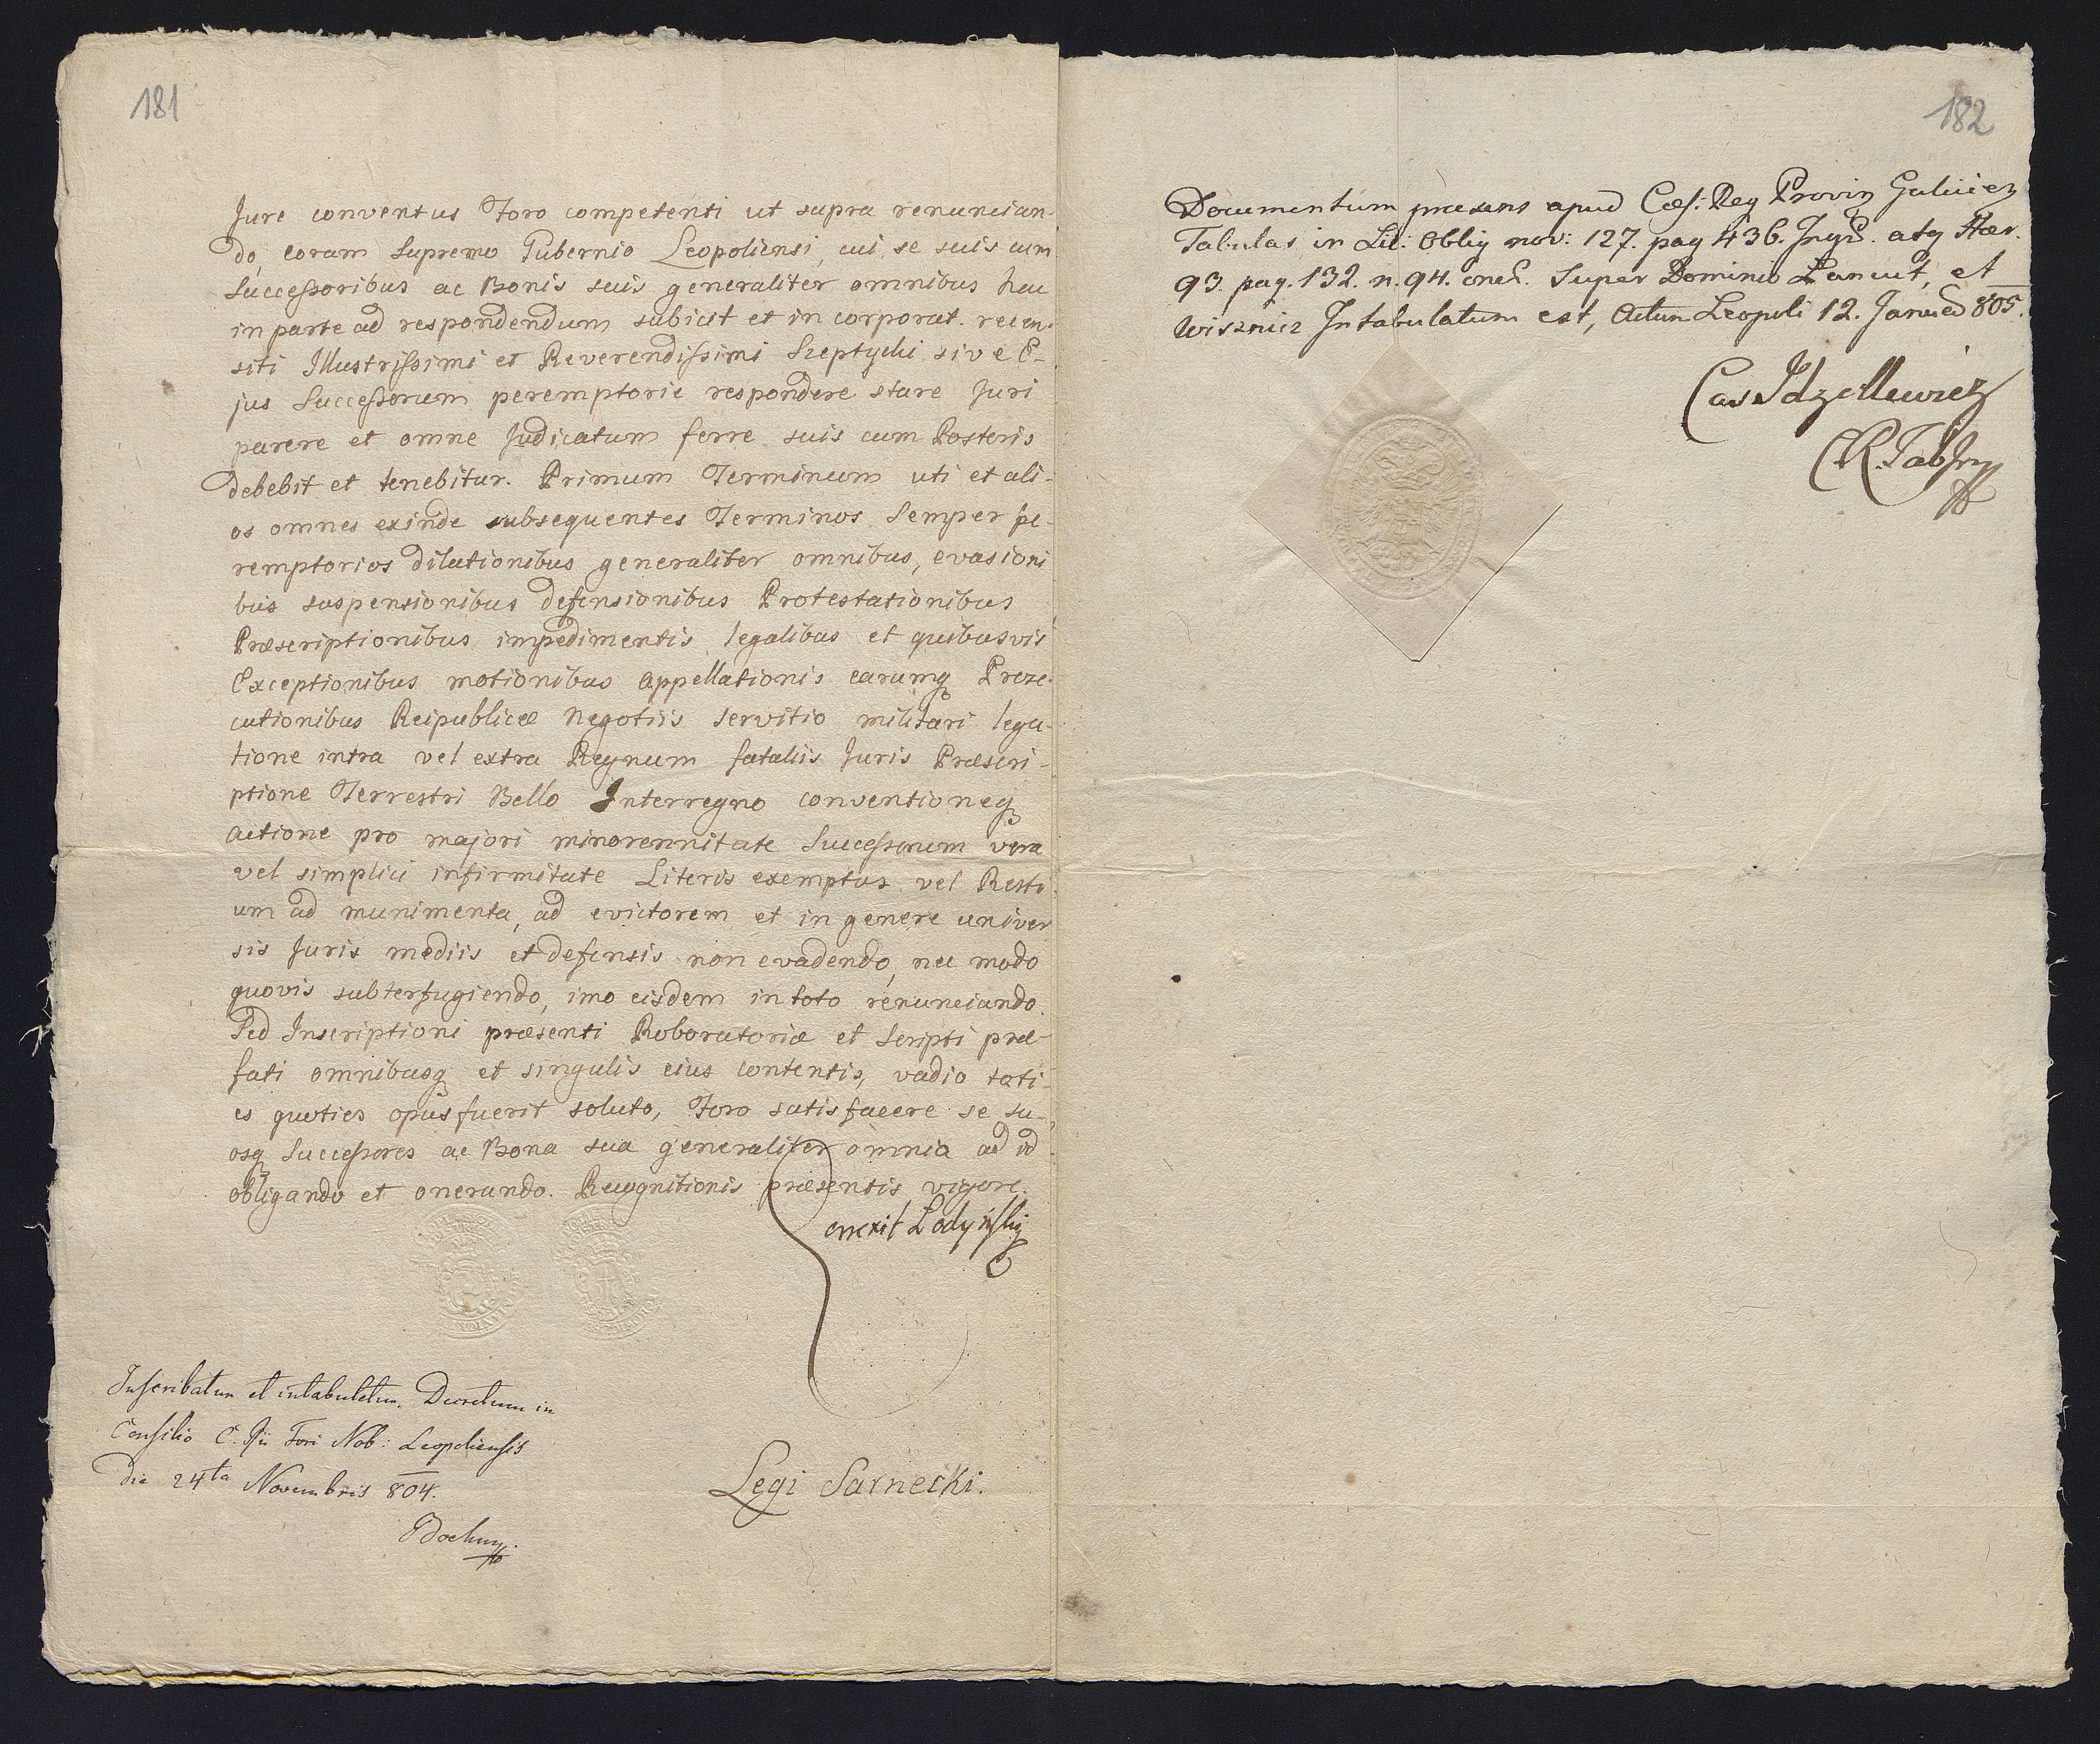 181
Jure conventus Foro competenti ut supra renuncian-
do, coram Supremo Gubernio Leopoliensi, cui se suis cum
Successoribus ac Bonis suis generaliter omnibus hac
in parte ad respondendum subicit et incorporat. recen-
siti Illustrissimi et Reverendissimi Szeptycki sive E-
jus Successorum peremptorie respondere stare Juri
parere et omne Judicatum ferre suis cum Posteris
debebit et tenebitur. Primum Terminum uti et ali-
os omnes exinde subsequentes Terminos Semper pe-
remptorios dilationibus generaliter omnibus, evasioni
bus suspensionibus defensionibus Protestationibus
Præscriptionibus impedimentis legalibus et quibusvis
Exceptionibus motionibus appellationis earumq Proze-
cutionibus Reipublicæ Negotiis servitio militari lega-
tione intra vel extra Regnum fataliis Juris Præscri-
ptione Terrestri Bello Interregno conventioneq
actione pro majori minorennitate Successorum vera
vel simplici infirmitate Literis exemptus vel
um ad munimenta, ad evictorem et in genere univer
sis Juris mediis et defensis non evadendo, nec modo
quovis subterfugiendo, imo eisdem in toto renunciando.
Sed Inscriptioni præsenti Roboratoriæ et Scripti præ-
fati omnibusq et singulis eius contentis, vadio toti-
es quoties opus fuerit soluto, Foro satisfacere se su-
osq Successores ac Bona sua generaliter omnia ad id
obligando et onerando. Recognitionis præsentis vigore.
Łodyński
Inscribatur et intabuletur. Decretum in
Consilio C. Rii Fori Nob: Leopoliensis
die 24ta Novembris 804.
Legi Sarnecki.
182
Documentum præsens apud Cæs: Reg Provin Galiciez
Tabulas in Lib: Oblig nov: 127. pag 436. Ingr. atq Hær.
93. pag. 132. n. 94. oner. Super Dominio Łancut, et
Wisznicz Intabulatum est, Actum Leopoli 12. Januar 805.